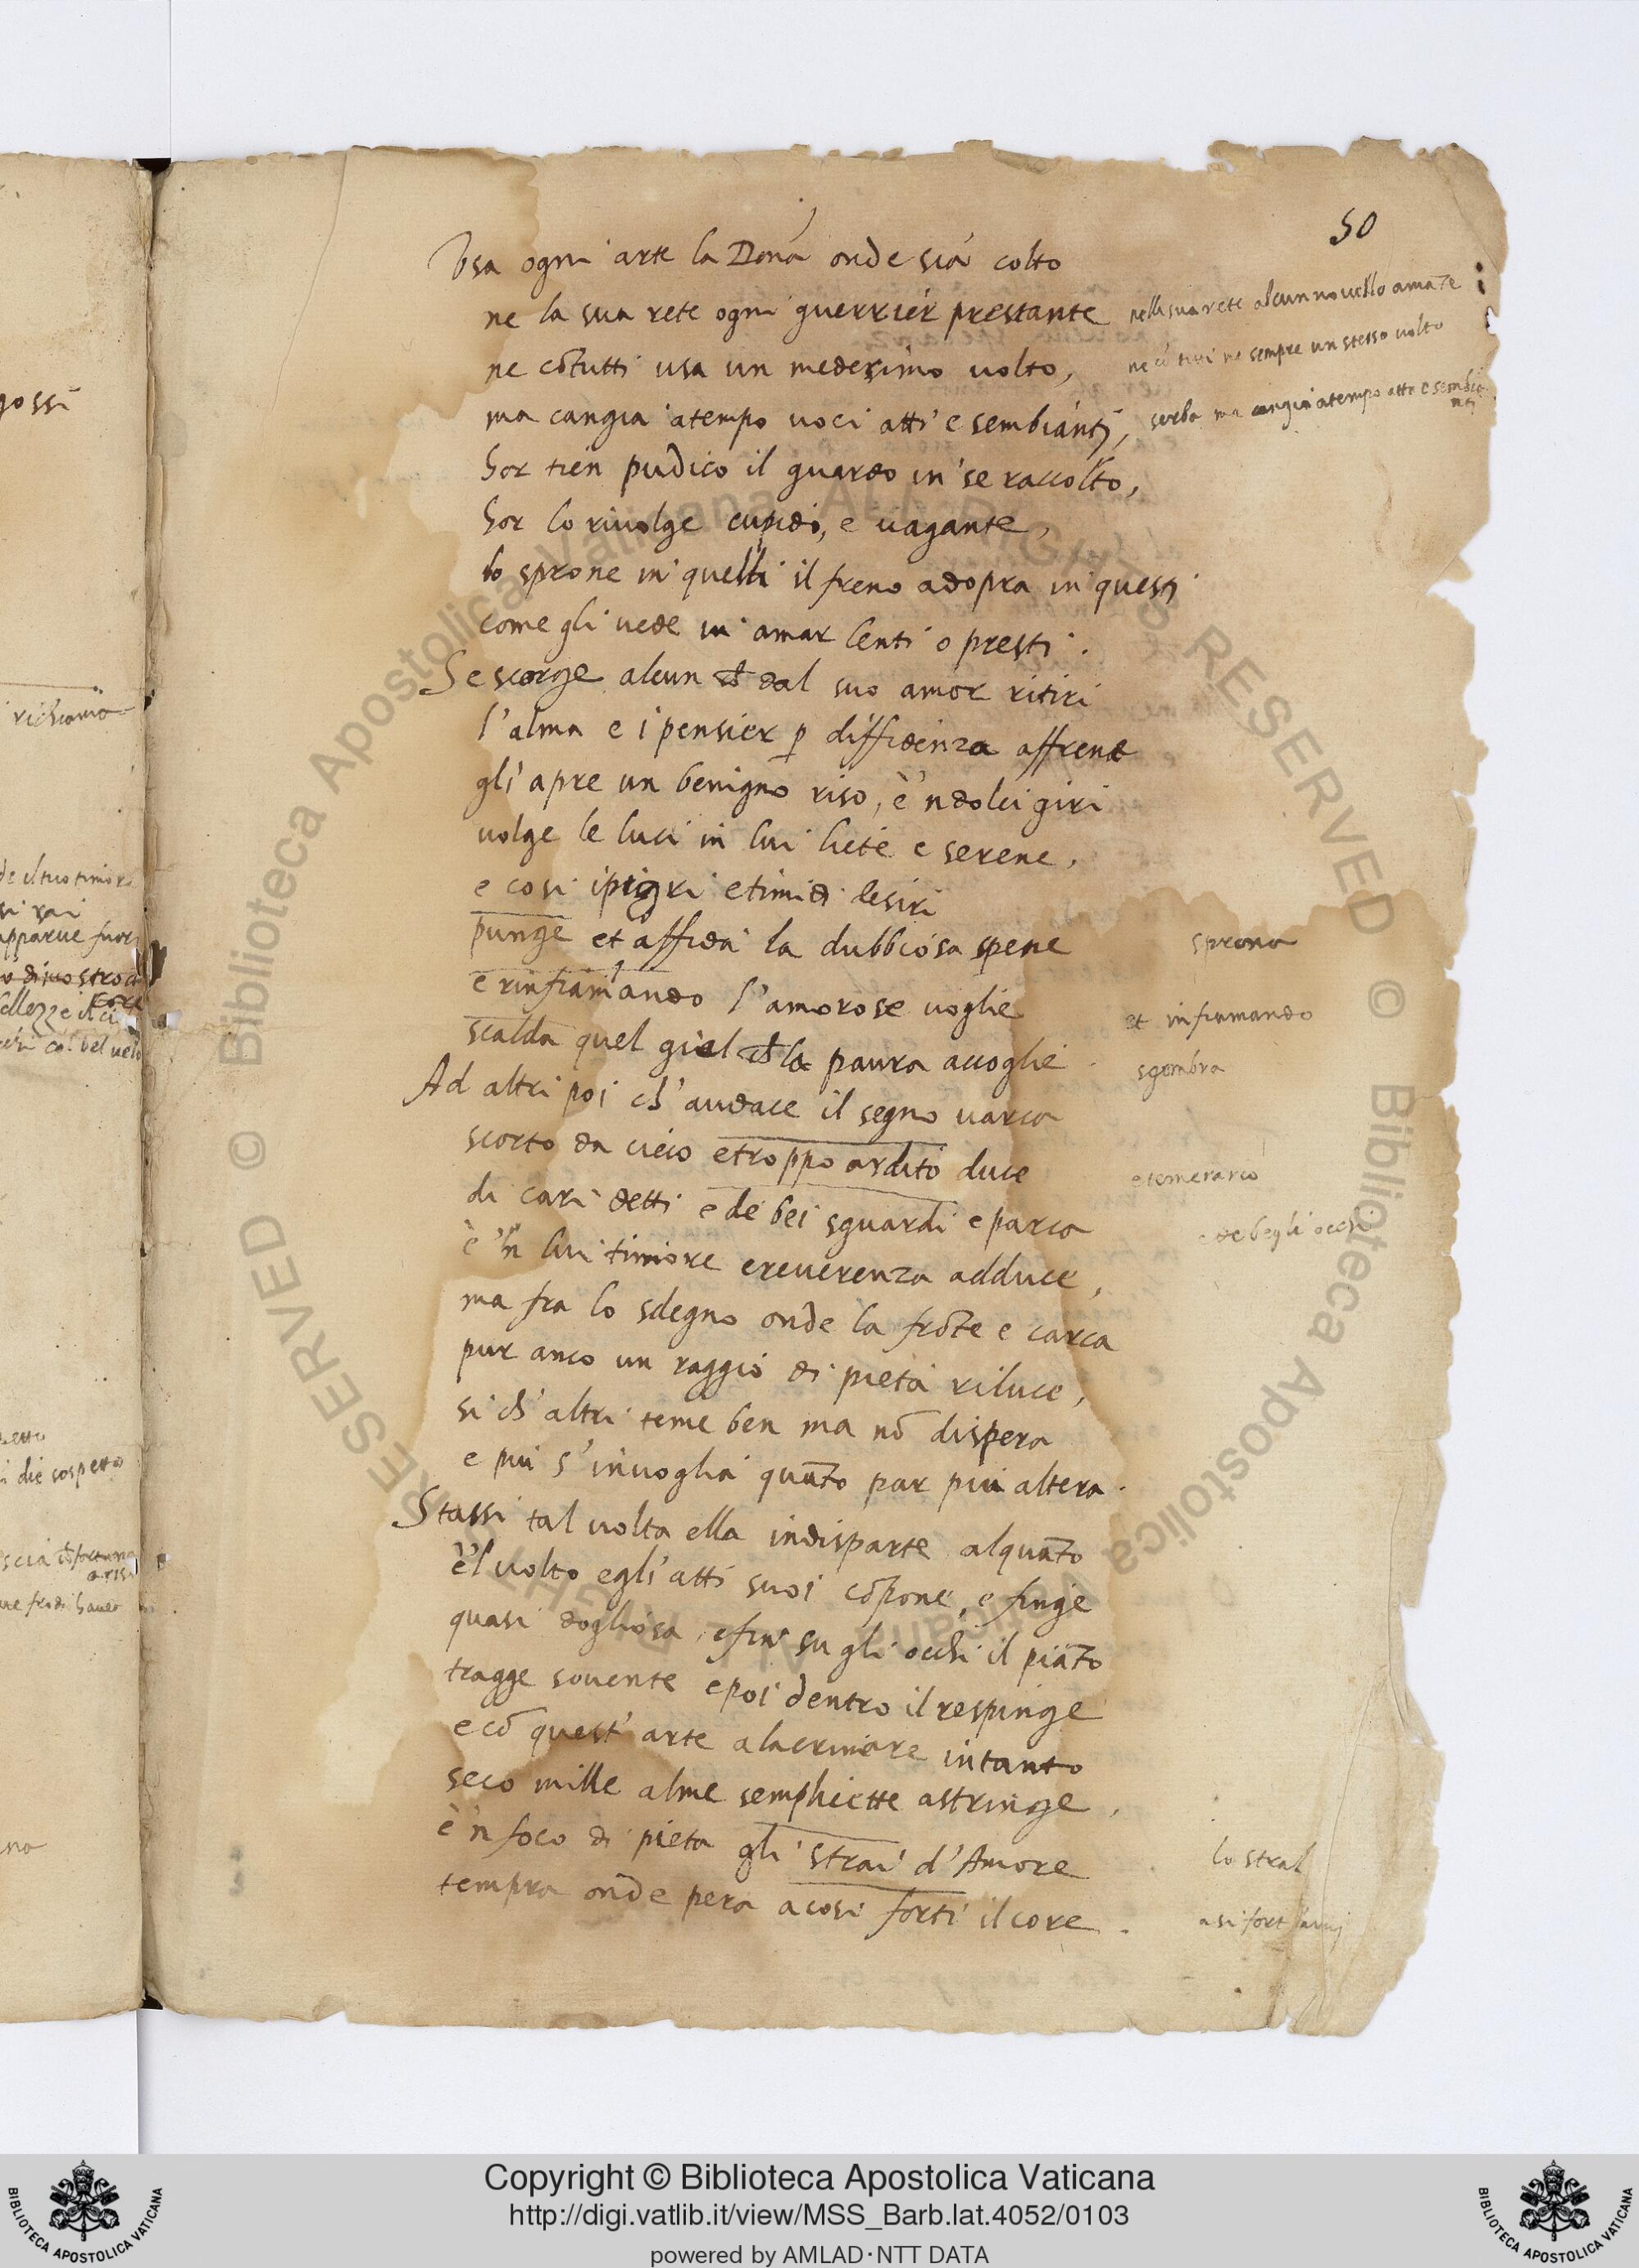 50
Usa ogni arte la Dona onde sia colto
ne la sua rete ogni guerrier prestante
nella sua rete alcun novello amāte
ne cō tutti usa un medesimo volto,
ne cō tutti ne sempre un stesso volto
ma cangia atempo voci atti e sembianti,
serba ma cangia atempo atto e sembia
nti
hor tien pudico il guardo in se raccolto,
hor lo rivolge cupido, e vagante,
lo sprone in quelli il freno adopra in questi
come gli vede in amar lenti o presti.
Se scorge alcun ch dal suo amor ritiri
l'alma e i pensier p diffidenza affrene
gli apre un benigno riso, e 'n dolci giri
volge le luci in lui liete e serene,
e cosi i pigri e timidi desiri
punge et affida la dubbiosa spene
sprona
e rinfiammando l'amorose voglie
et infiammando
scalda quel giel ch la paura accoglie.
sgombra
Ad altri poi ch'audace il segno varca
scorto da cieco e troppo ardito duce
e temerario
di cari detti e de bei sguardi e parca
e de begli occhi
e 'n lui timore e reverenza adduce,
ma fra lo sdegno onde la frōte e carca
pur anco un raggio di pieta riluce,
si ch'altri teme ben ma nō dispera
e piu s'invoglia quāto par piu altera.
Stassi tal volta ella indisparte alquāto
e 'l volto e gli atti suoi cōpone, e finge
quasi dogliosa, e fin su gli occhi il piāto
tragge sovente e poi dentro il respinge
e cō quest'arte a lacrimare intanto
seco mille alme semplicette astringe,
e 'n foco di pieta gli strai d'Amore
lo stral
tempra onde pera a cosi forti il core.
a si fort'armi
gossi
richiamo
de il tuo timore
si rai
apparue fuor
bellezze il ci
co' bel velo
die sospetto
Copyright © Biblioteca Apostolica Vaticana
http://digi.vatlib.it/view/MSS_Barb.lat.4052/0103
powered by AMLAD·NTT DATA
BIBLIOTECA APOSTOLICA VATICANA
BIBLIOTECA APOSTOLICA VATICANA
© Biblioteca Apostolica Vaticana ALL RIGHTS RESERVED © Biblioteca Apostolica Vaticana ALL RIGHTS RESERVED